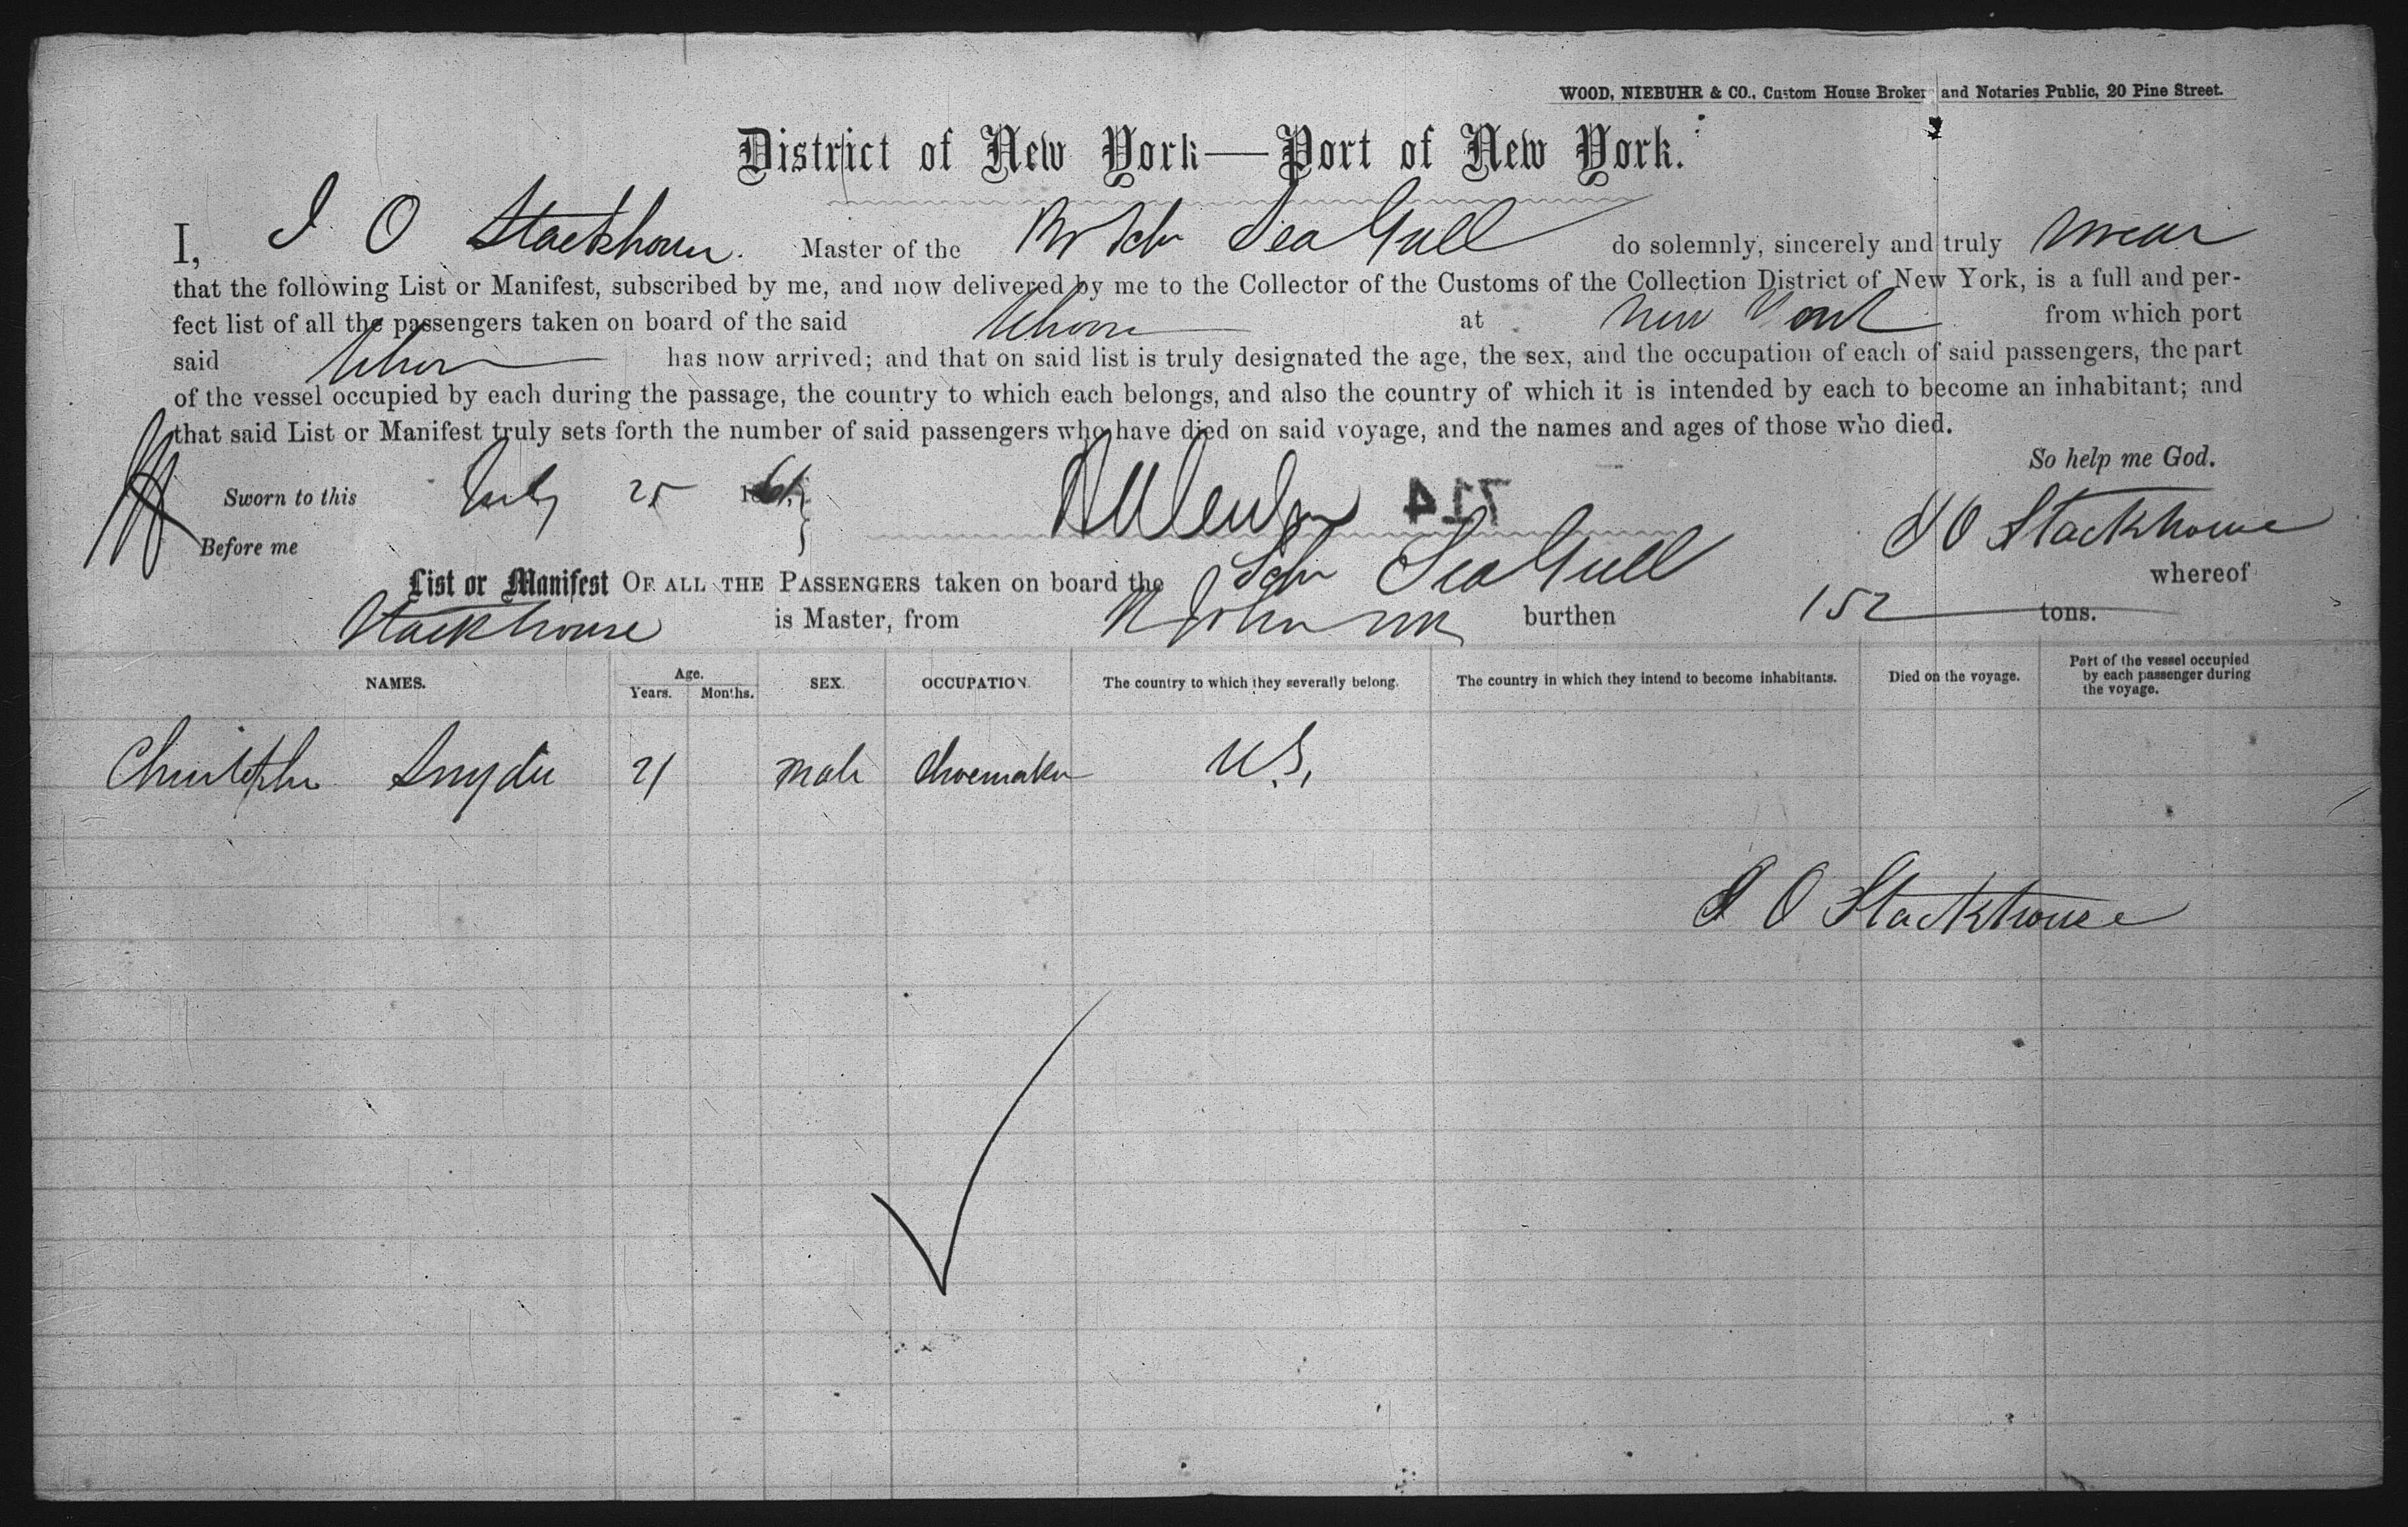 WOOD, NIEBUHR & CO., Custom House Broker and Notaries Public, 20 Pine Street.
District of New York—Port of New York.
I, I O Stackhouse. Master of the Br Schr Sea Gull do solemnly, sincerely and truly swear
that the following List or Manifest, subscribed by me, and now delivered by me to the Collector of the Customs of the Collection District of New York, is a full and per-
fect list of all the passengers taken on board of the said Schoon at New York from which port
said Schoon has now arrived; and that on said list is truly designated the age, the sex, and the occupation of each of said passengers, the part
of the vessel occupied by each during the passage, the country to which each belongs, and also the country of which it is intended by each to become an inhabitant; and
that said List or Manifest truly sets forth the number of said passengers who have died on said voyage, and the names and ages of those who died.
So help me God.
Sworn to this July 25 714 I O Stackhouse
Before me
List or Manifest OF ALL THE PASSENGERS taken on board the Schr Sea Gull whereof
Stackhouse is Master, from St John NB burthen 152 tons.
NAMES. Age. Years. Months. SEX. OCCUPATION. The country to which they severally belong. The country in which they intend to become inhabitants. Died on the voyage. Part of the vessel occupied by each passenger during the voyage.
Christopher Snyder 21 male Shoemaker U.S.
I O Stackhouse